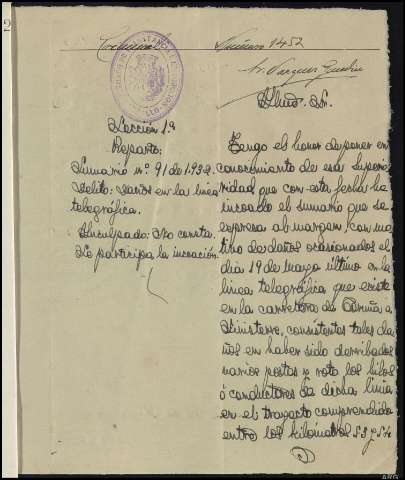 2
Criminal
Número 1452
Sr. Vazquez Gundin
Iltmo. Sr.
Sección 1ª
Reparto.
Sumario nº. 91 de 1932.
Delito: daños en la linea
telegráfica.
Inculpado: No consta
Se participa la incoación.
Tengo el honor de poner en
conocimiento de esa Superio
ridad que con esta fecha he
incoado el sumario que se
expresa al margen, con mo
tivo de daños ocasionados el
día 19 de Marzo último en la
linea telegráfica que existe
en la carretera de Coruña a
Finisterre, consistentes tales da
ños en haber sido derribados
varios postes y roto los hilos
ó conductores de dicha linea
en el trayecto comprendido
entre los kilómetros 53 y 54
ARG